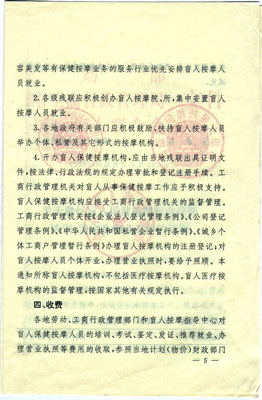 容美发等有保健按摩业务的服务行业优先安排盲人按摩人
员就业。
2.各级残联应积极创办盲人按摩院、所,集中安置盲人
按摩人员就业。
3.各地政府有关部门应积极鼓励、扶持盲人按摩人员
举办个体、私营及其它形式的按摩机构。
4.开办盲人保健按摩机构,应由当地残联出具证明文
件,按法律、行政法规的规定办理审批和登记注册手续。工
商行政管理机关对盲人从事保健按摩工作应予积极支持。
盲人保健按摩机构应接受工商行政管理机关的监督管理。
工商行政管理机关按《企业法人登记管理条例》、《公司登记
管理条例》、《中华人民共和国私营企业暂行条例》、《城乡个
体工商户管理暂行条例》办理盲人按摩机构的注册登记;对
盲人按摩人员个体开业,办理营业执照时,要给予照顾。本
通知所称盲人按摩机构,不包括医疗按摩机构。盲人医疗按
摩机构的监督管理,按国家其他有关规定执行。
四、收费
各地劳动、工商行政管理部门和盲人按摩指导中心对
盲人保健按摩人员的培训、考试、鉴定、发证、推荐就业、办
理营业执照等费用的收取,参照当地计划(物价)财政部门
— 5 —